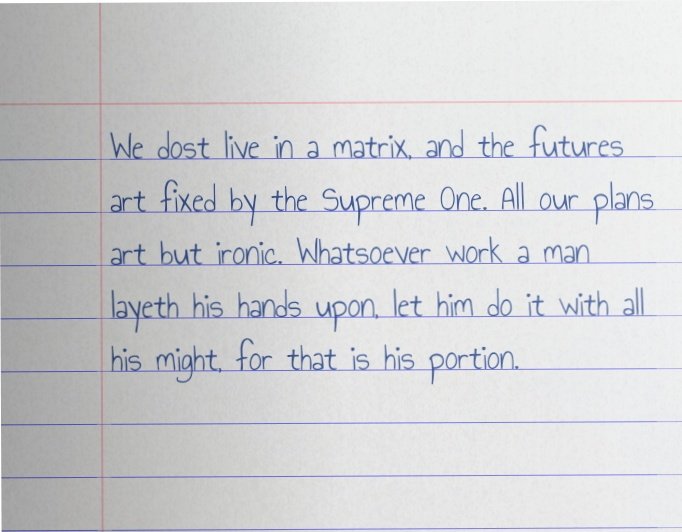 We dost live in a matrix, and the futures
art fixed by the Supreme One. All our plans
art but ironic. Whatsoever work a man
layeth his hands upon, let him do it with all
his might, for that is his portion.